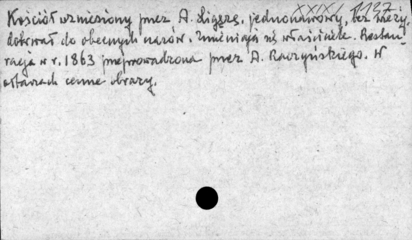 XXIX/1 137.
Kościół wzniesiony przez A. Ligęzę, jednonawowy, bez wieży,
dotrwał do obecnych czasów. Zmieniają się właściciele. Restau
racja w r. 1863 przeprowadzona przez A. Raczyńskiego. W
ołtarzach cenne obrazy.